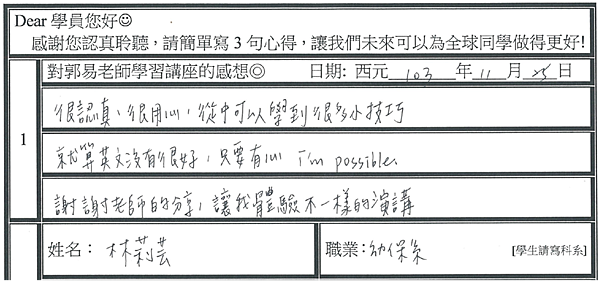 Dear 學員您好☺
感謝您認真聆聽，請簡單寫 3 句心得，讓我們未來可以為全球同學做得更好!
對郭易老師學習講座的感想◎ 日期: 西元 103 年 11 月 25 日
1
很認真、很用心，從中可以學到很多小技巧
就算英文沒有很好，只要有心 i'm possible.
謝謝老師的分享，讓我體驗不一樣的演講
姓名： 林莉芸 職業： 幼保系 [學生請寫科系]